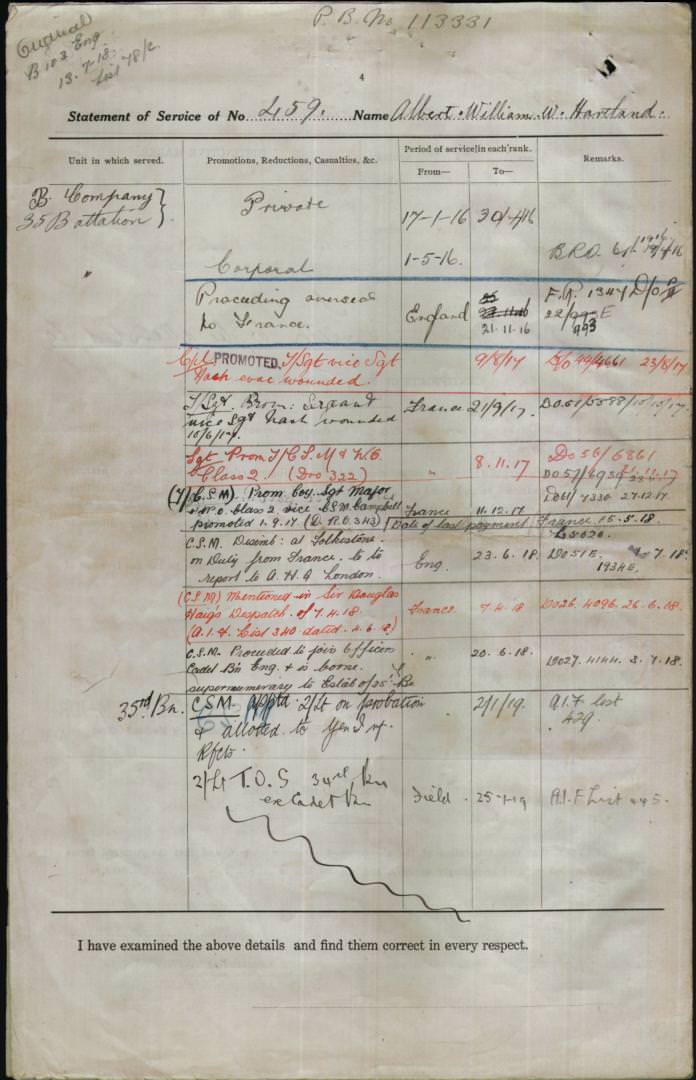 P.B. No 113331
Original
B 103 Eng
13.7.18.
List 78/2.
4
Statement of Service of No. 459. Name Albert. William. W. Hartland.
Unit in which served.
Promotions, Reductions, Casualties, &c.
Period of service in each rank.
From—
To—
Remarks.
B. Company }
35 Battation }
Private
17-1-16 30/4/16
Corporal
1-5-16.
B.R.O.
Proceeding overseas
to France.
England
21.11.16
F.R. 1347 D/O
22/
Cpl PROMOTED T/Sgt vice Sgt
Nash evac wounded.
9/8/17
D/o 49/4661 23/8/17
T/Sgt. Prom: Sergeant
vice Sgt Nash wounded
10/6/17.
France 21/9/17.
DO.61/5588/10/10/17
Sgt Prom T/C.S.M & W.O.
Class 2. (Dro 322)
" 8.11.17
Do 56/6861
DO 57/6939
(T/C.S.M) Prom Coy. Sgt Major
& W.O. Class 2 vice CSM. Campbell
promoted 1.9.17 (D.R.O 343)
France 11.12.17
DO61/7330 27.12.17
Date of last payment France 15.5.18.
C.S.M. Disemb: at Folkestone
on Duty from France. to to
report to A.H.Q London.
Eng. 23.6.18.
DO51E. 7.18.
1934E.
(C.S.M) Mentioned in Sir Douglas
Haig's Despatch of 7.4.18.
(A.I.F. List 340 dated. 4.6.18)
France 7.4.18
DO26. 4096. 26.6.18.
C.S.M. Proceeded to join Officer
Cadet Bn Eng. & is borne
supernumerary to Estab of 35th Bn
" 20.6.18.
DO27.4144. 3.7.18.
35rd Bn. C.S.M. apptd. 2/Lt on probation
& allotted to Gen Inf.
Rfcts.
2/1/19.
A.I.F list
429.
2/Lt T.O.S 34th Bn
ex Cadet Bn
Field. 25-1-19
A.I.F List 445.
I have examined the above details and find them correct in every respect.